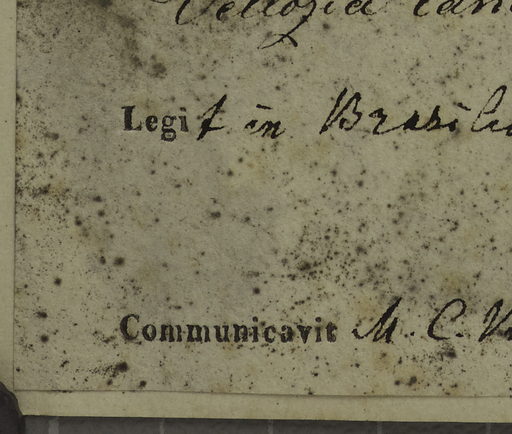 Vellozia
Legit in Brasili
Communicavit M. C.